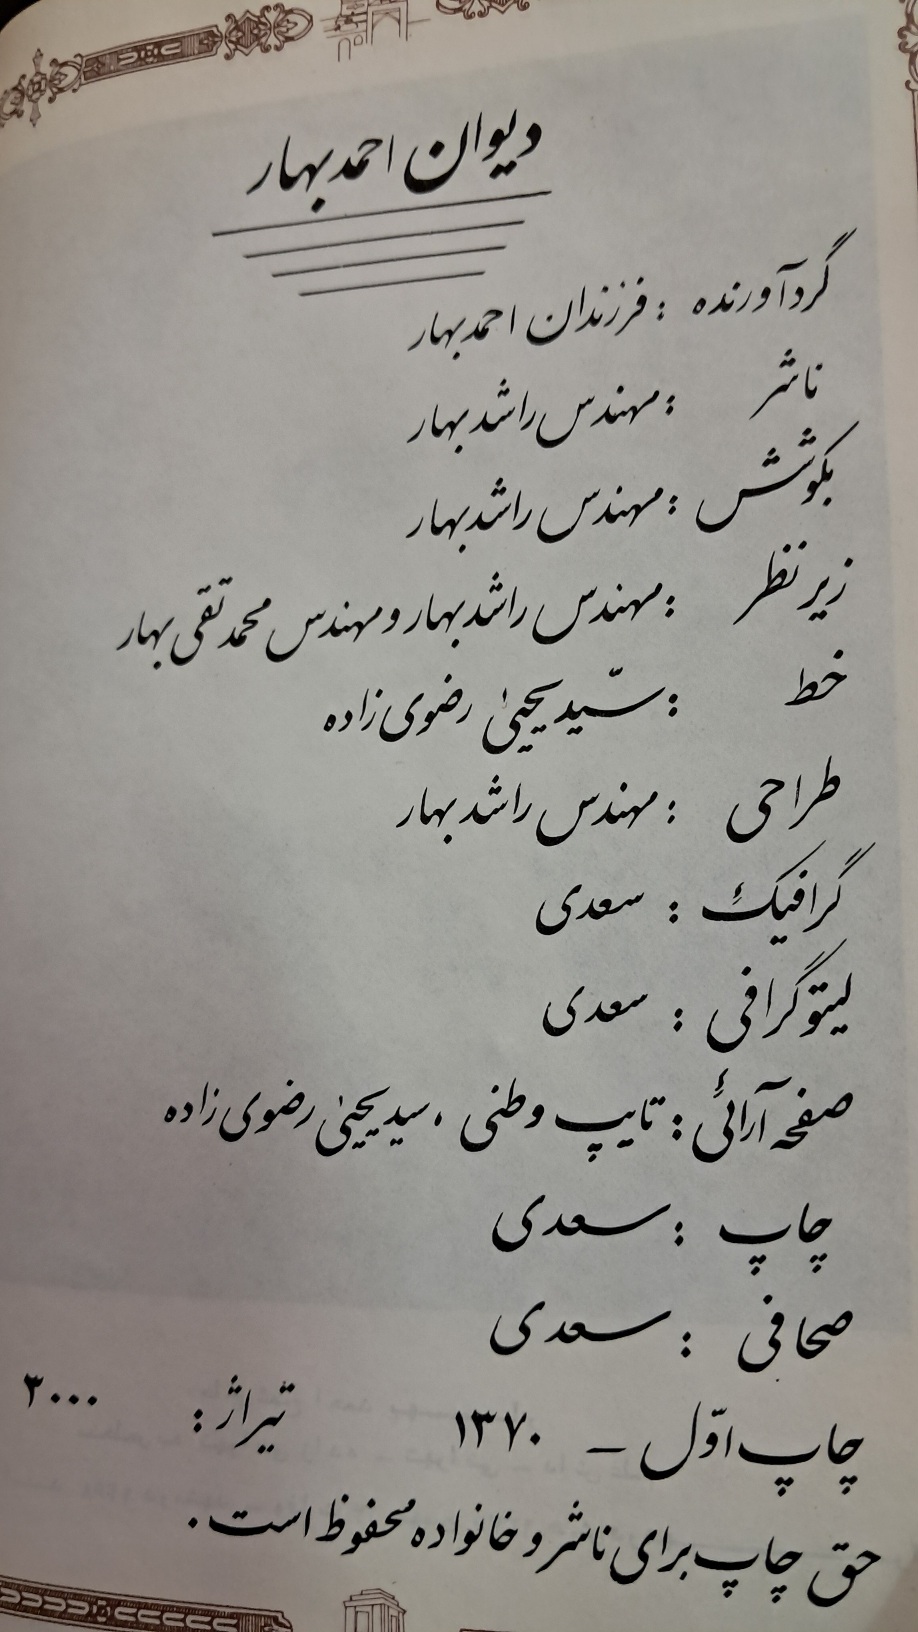 دیوان احمد بهار
گردآورنده : فرزندان احمد بهار
ناشر : مهندس راشد بهار
بکوشش : مهندس راشد بهار
زیر نظر : مهندس راشد بهار و مهندس محمد تقی بهار
خط : سیّد یحییٰ رضوی زاده
طراحی : مهندس راشد بهار
گرافیک : سعدی
لیتوگرافی : سعدی
صفحه آرائی : تایپ وطنی ، سید یحییٰ رضوی زاده
چاپ : سعدی
صحافی : سعدی
چاپ اوّل – ۱۳۷۰ تیراژ : ۳۰۰۰
حق چاپ برای ناشر و خانواده محفوظ است .